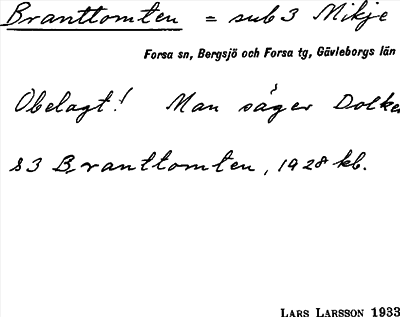 Branttomten = sub 3 Mikje
Forsa sn, Bergsjö och Forsa tg, Gävleborgs län
Obelagt! Man säger Dolken
s3 Branttomten, 1928 kb.
LARS LARSSON 1933